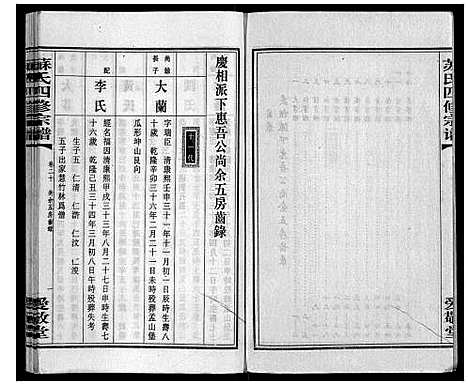 蘇氏四修宗譜
愛敬堂
慶相派下惠吾公尚余五房齒錄
尚雄長子
大蘭
字瑞臣 清康熙壬申三十一年十一月初一日辰時生壽八
十歲 乾隆辛卯三十六年二月二十一日未時歿葬孟山堡
瓜形坤山艮向
配
李氏
名福 清康熙甲戌三十三年八月二十七日申時生壽七
十六歲 乾隆己丑三十四年三月初八日午時歿葬失考
生子五 仁清 仁濟 仁汶 仁浚
五子出家慧竹林爲僧
蘇氏四修宗譜
卷二十
愛敬堂